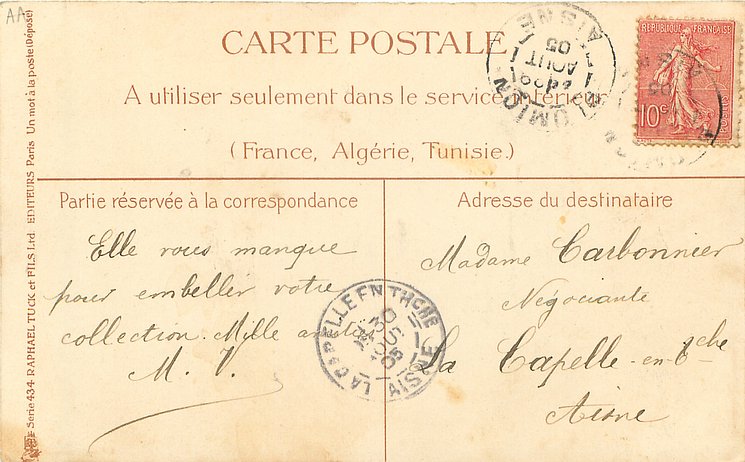 AA
CARTE POSTALE
A utiliser seulement dans le service intérieur
(France, Algérie, Tunisie.)
RÉPUBLIQUE FRANÇAISE
10c
AISNE
29
AOUT
05
Partie réservée à la correspondance
Elle vous manque
pour embellir votre
collection. Mille
M. V.
Adresse du destinataire
Madame Carbonnier
Négociante
La Capelle-en-Tche
Aisne
LA CAPELLE EN THCHE
30
AOUT
05
AISNE
Serie 434 RAPHAEL TUCK et FILS Ltd EDITEURS Paris Un mot à la poste (Déposé)